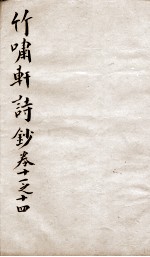 竹嘯軒詩鈔卷十一之十四